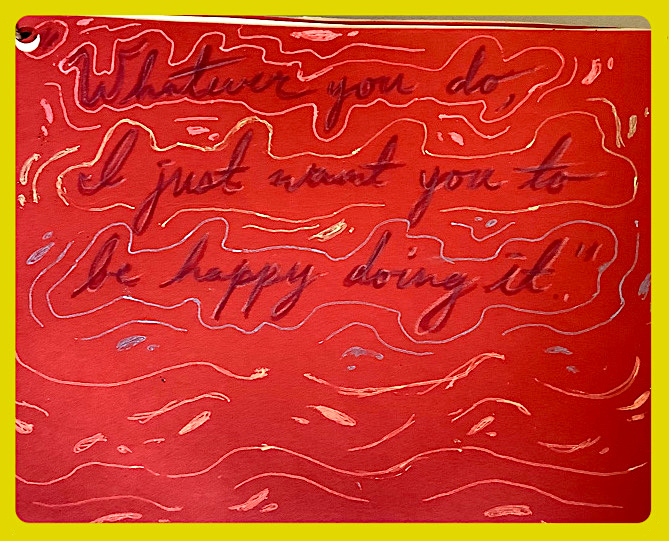 Whatever you do,
I just want you to
be happy doing it."